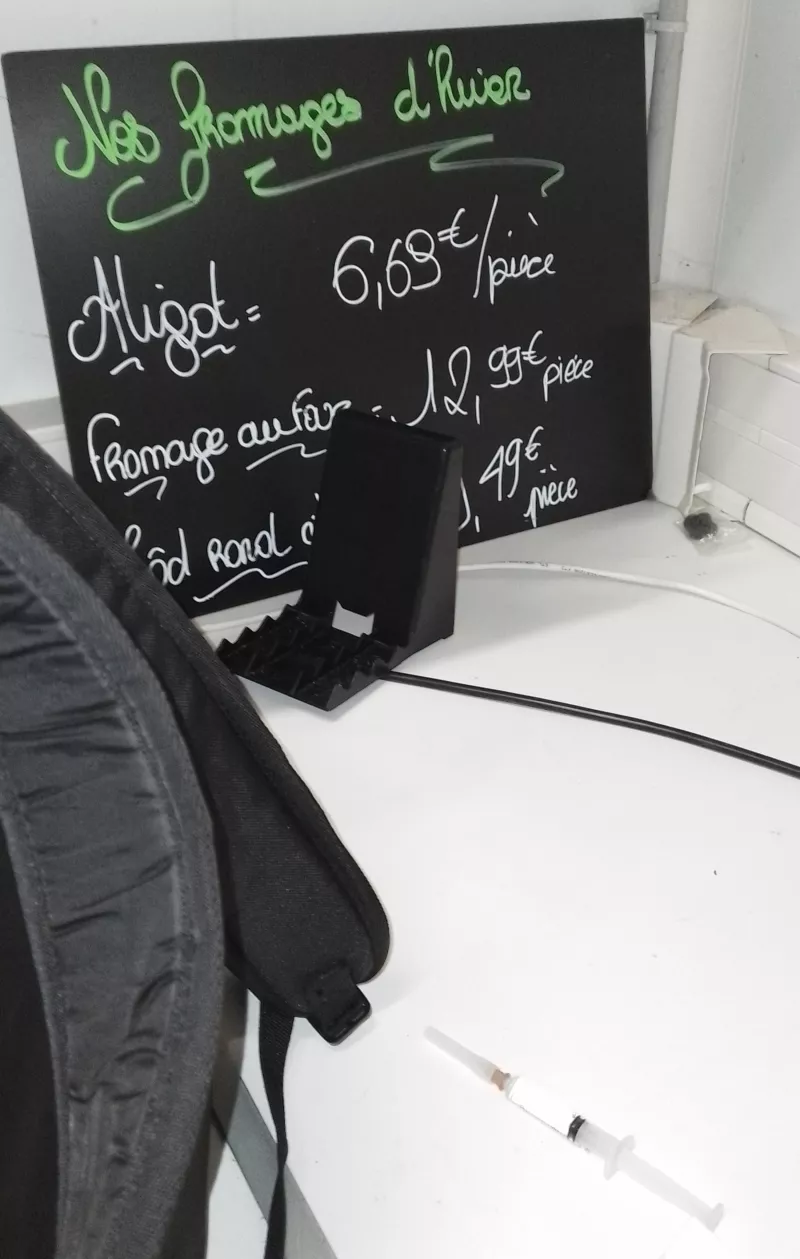 Nos fromages d'hiver
Aligot = 6,69€/pièce
fromage au four = 12,99€ pièce
rond ,49€ pièce